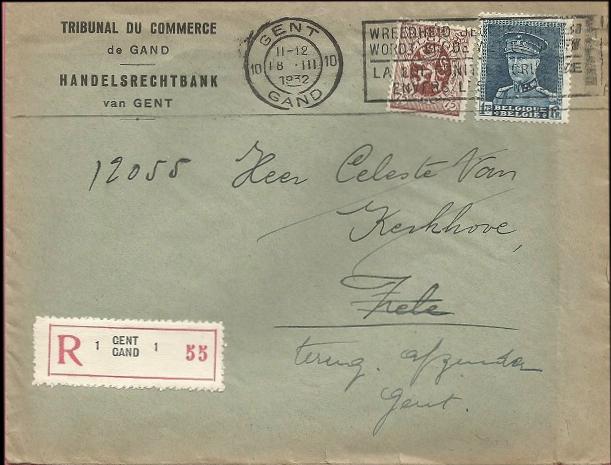 TRIBUNAL DU COMMERCE
de GAND
HANDELSRECHTBANK
van GENT
GENT
11-12
10 18 III 10
1932
GAND
WREEDHEID
WORDT DE
LA
ENVERS L
BELGIQUE
BELGIË
12055 Heer Celeste Van
Kerkhove,
terug. afzender
Gent.
R 1 GENT 1 55
GAND